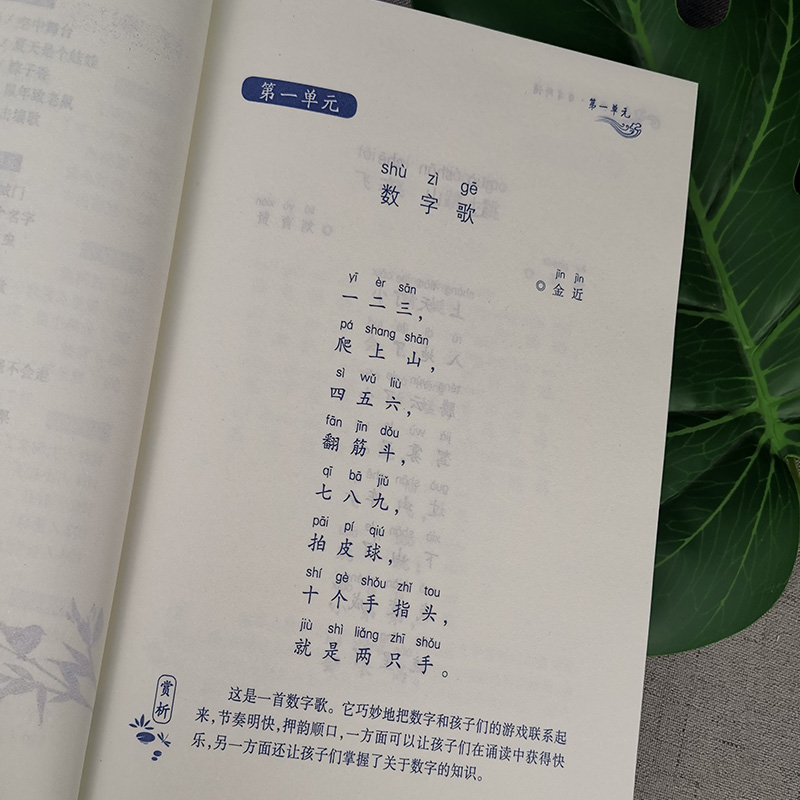 空中舞台
鼠年唯老鼠
个名字
虫
不会走
第一单元
第一单元
shù zì gē
数字歌
jīn jìn
◎金近
yī èr sān
一二三，
pá shang shān
爬上山，
sì wǔ liù
四五六，
fān jīn dǒu
翻筋斗，
qī bā jiǔ
七八九，
pāi pí qiú
拍皮球，
shí gè shǒu zhǐ tou
十个手指头，
jiù shì liǎng zhī shǒu
就是两只手。
赏析
这是一首数字歌。它巧妙地把数字和孩子们的游戏联系起
来，节奏明快，押韵顺口，一方面可以让孩子们在诵读中获得快
乐，另一方面还让孩子们掌握了关于数字的知识。